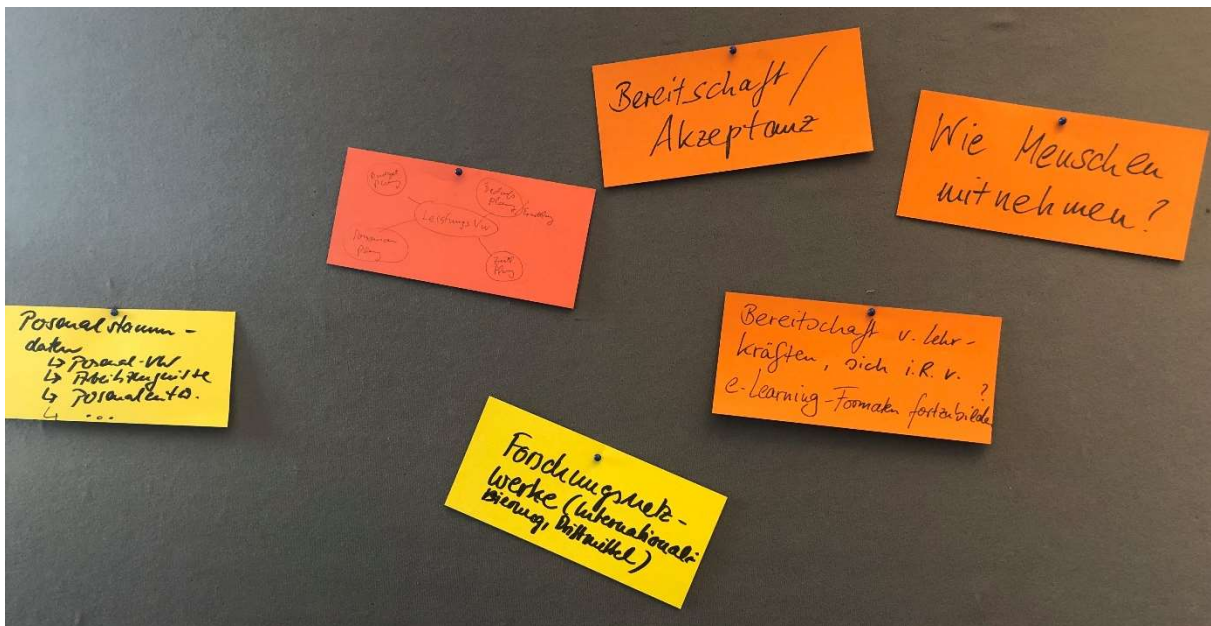 Bereitschaft /
Akzeptanz
Wie Menschen
mitnehmen?
Budget
Planung
Bedarfs
Planung
Leistungs VW
Personalstamm-
daten
↳ Personal-VW
↳ Arbeitszeugnisse
↳ Personalentw.
↳ ...
Bereitschaft v. Lehr-
kräften, sich i.R. v.
e-Learning-Formaten fortzubilden?
Forschungsnetz-
werke (Internationali-
sierung, Drittmittel)